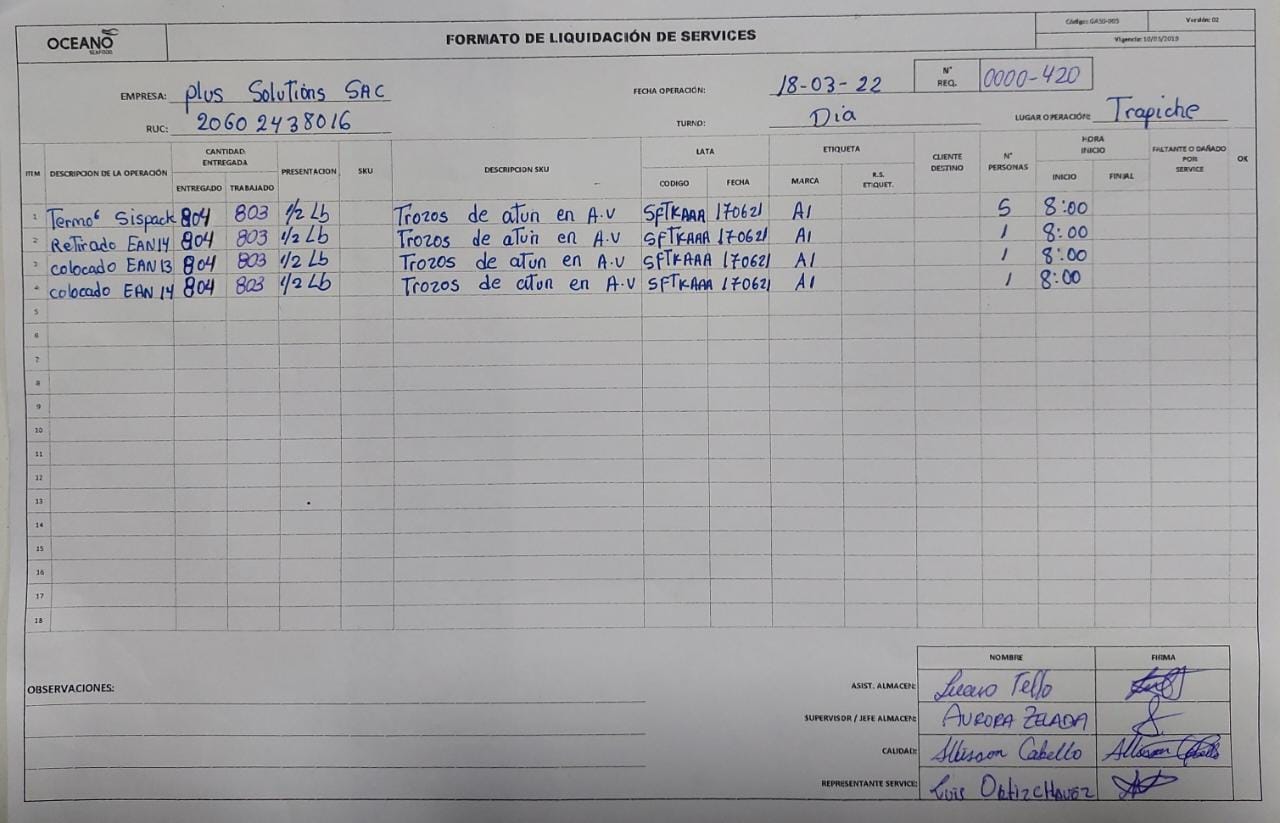 OCEANO
SEAFOOD
FORMATO DE LIQUIDACIÓN DE SERVICES
Código: GASO-005 Versión: 02
Vigencia: 10/05/2019
EMPRESA: plus Solutións SAC
RUC: 20602438016
FECHA OPERACIÓN: 18-03-22
N° REQ. 0000-420
TURNO: Dia
LUGAR OPERACIÓN: Trapiche
ITEM DESCRIPCION DE LA OPERACIÓN CANTIDAD ENTREGADA ENTREGADO TRABAJADO PRESENTACION SKU DESCRIPCION SKU LATA CODIGO FECHA ETIQUETA MARCA R.S. ETIQUET. CLIENTE DESTINO N° PERSONAS HORA INICIO INICIO FINAL FALTANTE O DAÑADO POR SERVICE OK
1 Termo Sispack 804 803 1/2 Lb Trozos de atun en A.V SFTKAAA 170621 A1 5 8:00
2 Retirado EAN14 804 803 1/2 Lb Trozos de atun en A.V SFTKAAA 170621 A1 1 8:00
3 colocado EAN13 804 803 1/2 Lb Trozos de atun en A.V SFTKAAA 170621 A1 1 8:00
4 colocado EAN 14 804 803 1/2 Lb Trozos de atun en A.V SFTKAAA 170621 A1 1 8:00
5
6
7
8
9
10
11
12
13
14
15
16
17
18
NOMBRE FIRMA
OBSERVACIONES:
ASIST. ALMACEN: Lucero Tello
SUPERVISOR / JEFE ALMACEN: AURORA ZELADA
CALIDAD: Allisson Cabello
REPRESENTANTE SERVICE: Luis Ortiz CHAVEZ